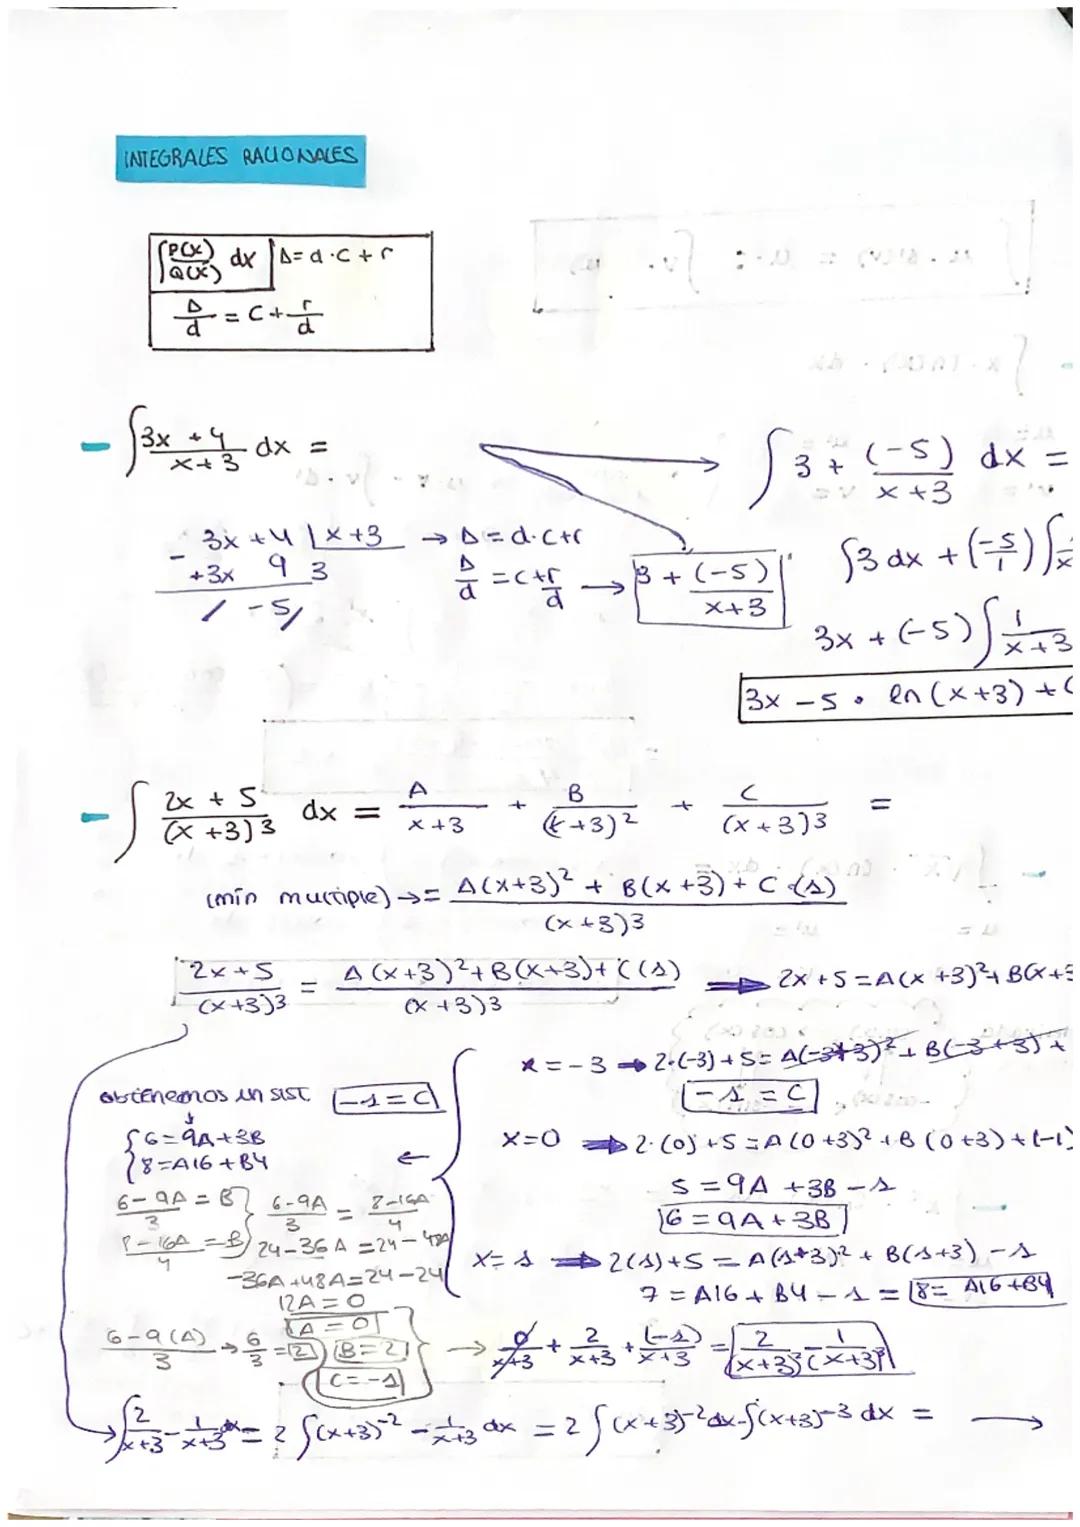 INTEGRALES RACIONALES
∫ P(x)/Q(x) dx | D = d · C + r
D/d = C + r/d
- ∫ 3x + 4 / x + 3 dx =
∫ 3 + (-5)/x + 3 dx =
3x + 4 | x + 3 → D = d · C + r
- +3x 9 3
D/d = C + r/d → 3 + (-5)/x + 3
/ -5/
∫3 dx + (-5/1) ∫
3x + (-5) ∫ 1/x + 3
3x - 5 · ln (x + 3) + C
- ∫ 2x + 5 / (x + 3)3 dx = A/x + 3 + B/(x + 3)2 + C/(x + 3)3 =
(mín multiple) → = A(x+3)2 + B(x+3) + C · (1) / (x+3)3
2x + 5/(x+3)3 = A(x+3)2 + B(x+3) + C(1)/(x+3)3 → 2x + 5 = A(x+3)2 + B(x+3
x = -3 → 2·(-3) + 5 = A(-3+3)2 + B(-3+3) +
obtenemos un sist. -1 = C
-1 = C
{ 6 = 9A + 3B
8 = A16 + B4 ←
x=0 → 2·(0) + 5 = A(0+3)2 + B(0+3) + (-1)
5 = 9A + 3B - 1
6 = 9A + 3B
6 - 9A/3 = B
8 - 16A/4 = B
6 - 9A/3 = 8 - 16A/4
24 - 36A = 24 - 48A
-36A + 48A = 24 - 24
12A = 0
A = 0
x = 1 → 2(1) + 5 = A(1+3)2 + B(1+3) - 1
7 = A16 + B4 - 1 = 8 = A16 + B4
6 - 9(A)/3 → 6/3 = 2 B = 2
C = -1
→ 0/x+3 + 2/x+3 + (-1)/x+3 = 2/(x+3)2 - 1/(x+3)3
∫ 2/x+3 - 1/x+3 dx = 2 ∫ (x+3)-2 - 1/x+3 dx = 2 ∫ (x+3)-2 dx - ∫(x+3)-3 dx = →